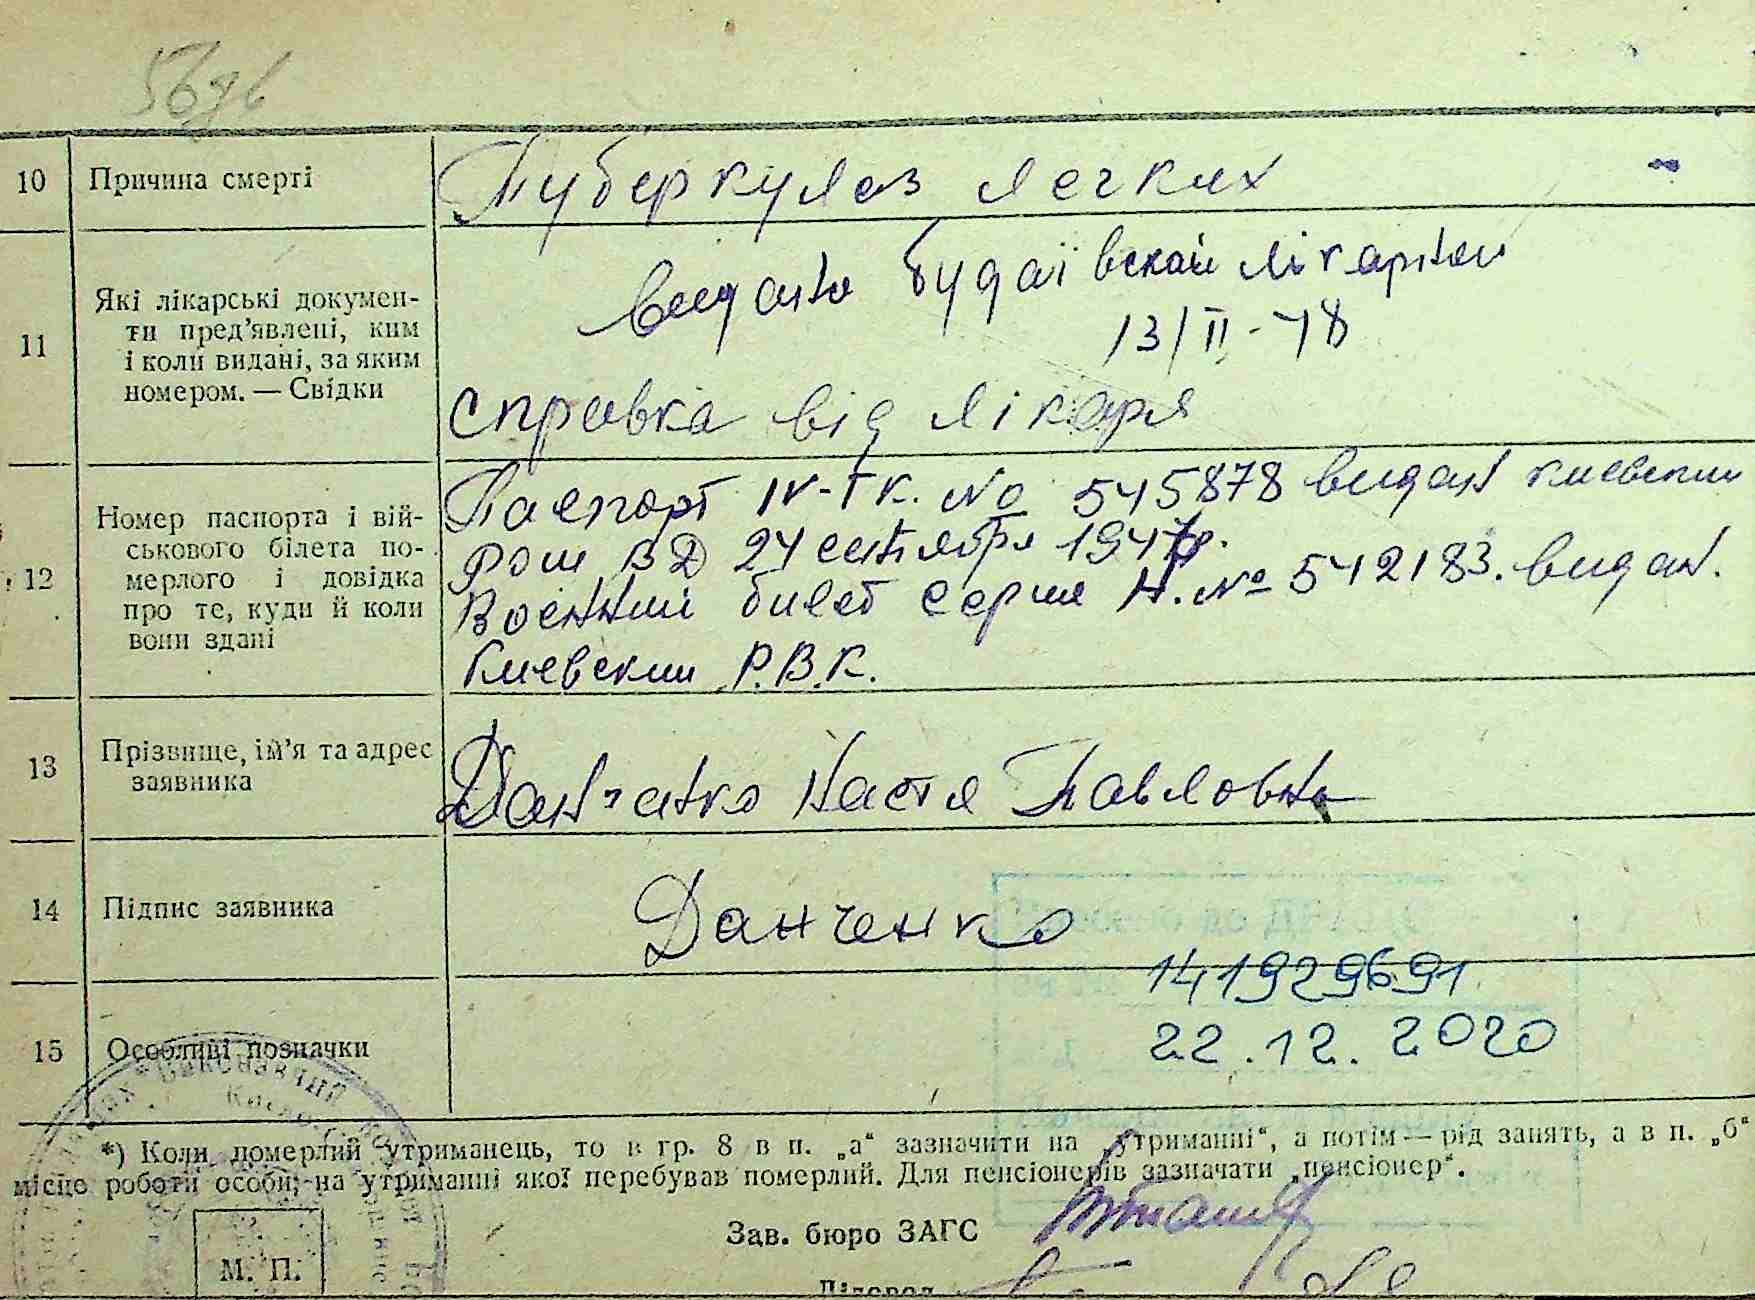 10 Причина смерті
Туберкулез легких
11 Які лікарські документи
ти пред’явлені, ким
і коли видані, за яким
номером. — Свідки
видано будаївской лікарньои
13/II-48
справка від лікаря
12 Номер паспорта і вій-
ськового білета по-
мерлого і довідка
про те, куди й коли
вони здані
Паспорт IV-ТК. № 545878 видан киевским
Рош ВД 24 сентября 1947р.
Военний билет серии Н. № 542183. видан.
Киевским Р.В.К.
13 Прізвище, ім’я та адрес
заявника
Данченко Настя Павловна
14 Підпис заявника
Данченко
15 Особливі позначки
141929691
22.12.2020
*) Коли померлий утриманець, то в гр. 8 в п. „а“ зазначити на „утриманні“, а потім — рід занять, а в п. „б“
місце роботи особи, на утриманні якої перебував померлий. Для пенсіонерів зазначати „пенсіонер“.
Зав. бюро ЗАГС
М. П.
Діловод